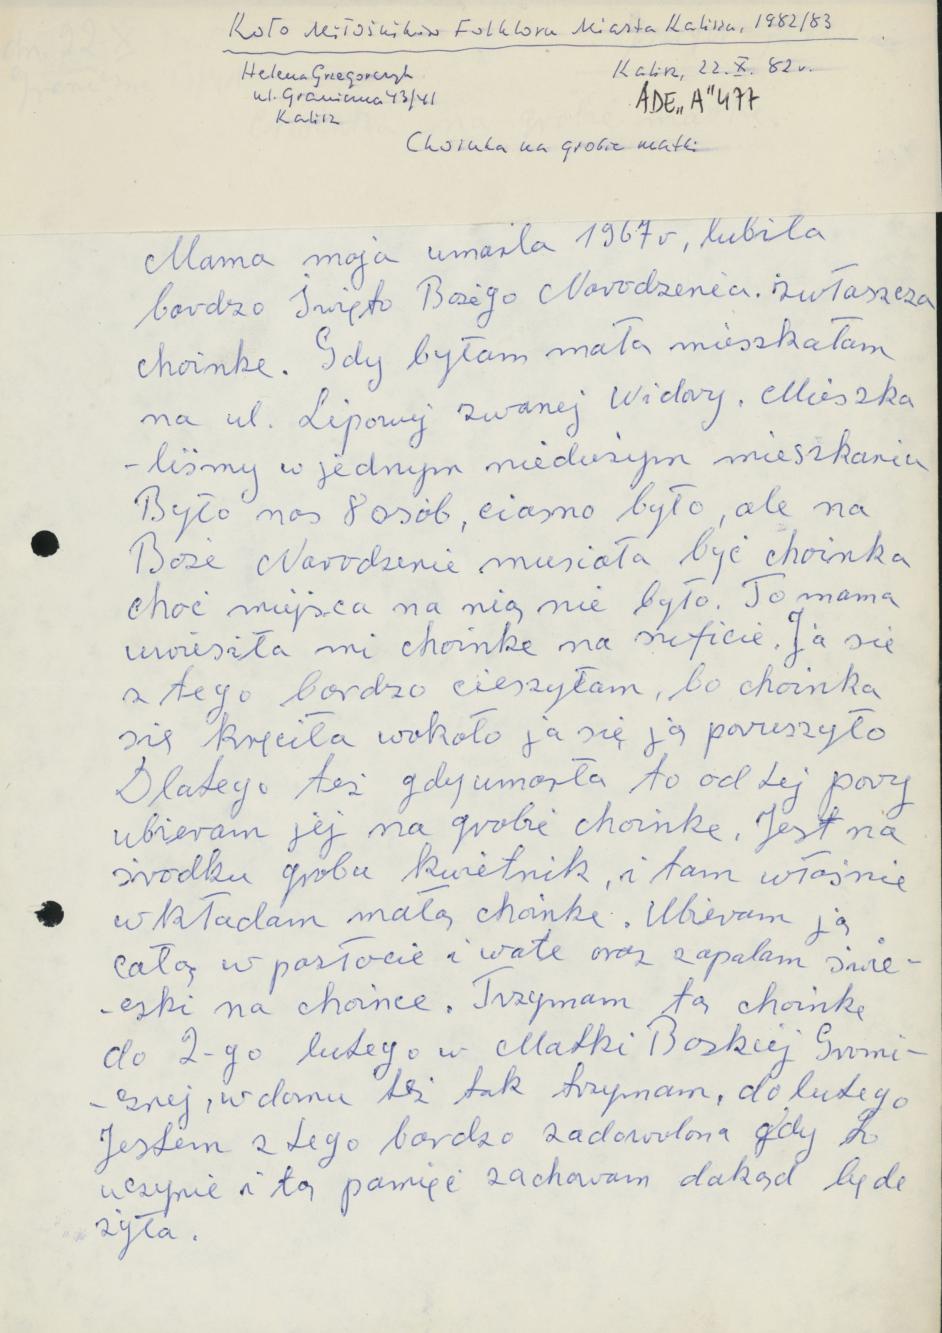 Koło Miłośników Folkloru Miasta Kalisza, 1982/83
Helena Grzegorczyk
ul. Graniczna 43/41
Kalisz
Kalisz, 22.X.82r.
ADE„A"477
Choinka na grobie matki
Mama moja umarła 1967r, lubiła
bardzo Święto Bożego Narodzenia. zwłaszcza
choinkę. Gdy byłam mała mieszkałam
na ul. Lipowej zwanej Widory. Mieszka
-liśmy w jednym niedużym mieszkaniu
Było nas 8 osób, ciasno było, ale na
Boże Narodzenie musiała być choinka
choć miejsca na nią nie było. To mama
uwiesiła mi choinkę na suficie. Ja się
z tego bardzo cieszyłam, bo choinka
się kręciła wokoło ja się ją poruszyło
Dlatego też gdy umarła to od tej pory
ubieram jej na grobie choinkę. Jest na
środku grobu kwietnik, i tam właśnie
wkładam małą choinkę. Ubieram ją
całą w pozłocie i wate oraz zapalam świe-
-czki na choince. Trzymam tą choinkę
do 2-go lutego w Matki Boskiej Gromi-
-cznej, w domu też tak trzymam, do lutego
Jestem z tego bardzo zadowolona gdy to
uczynie i tą pamięć zachowam dokąd będe
żyła.